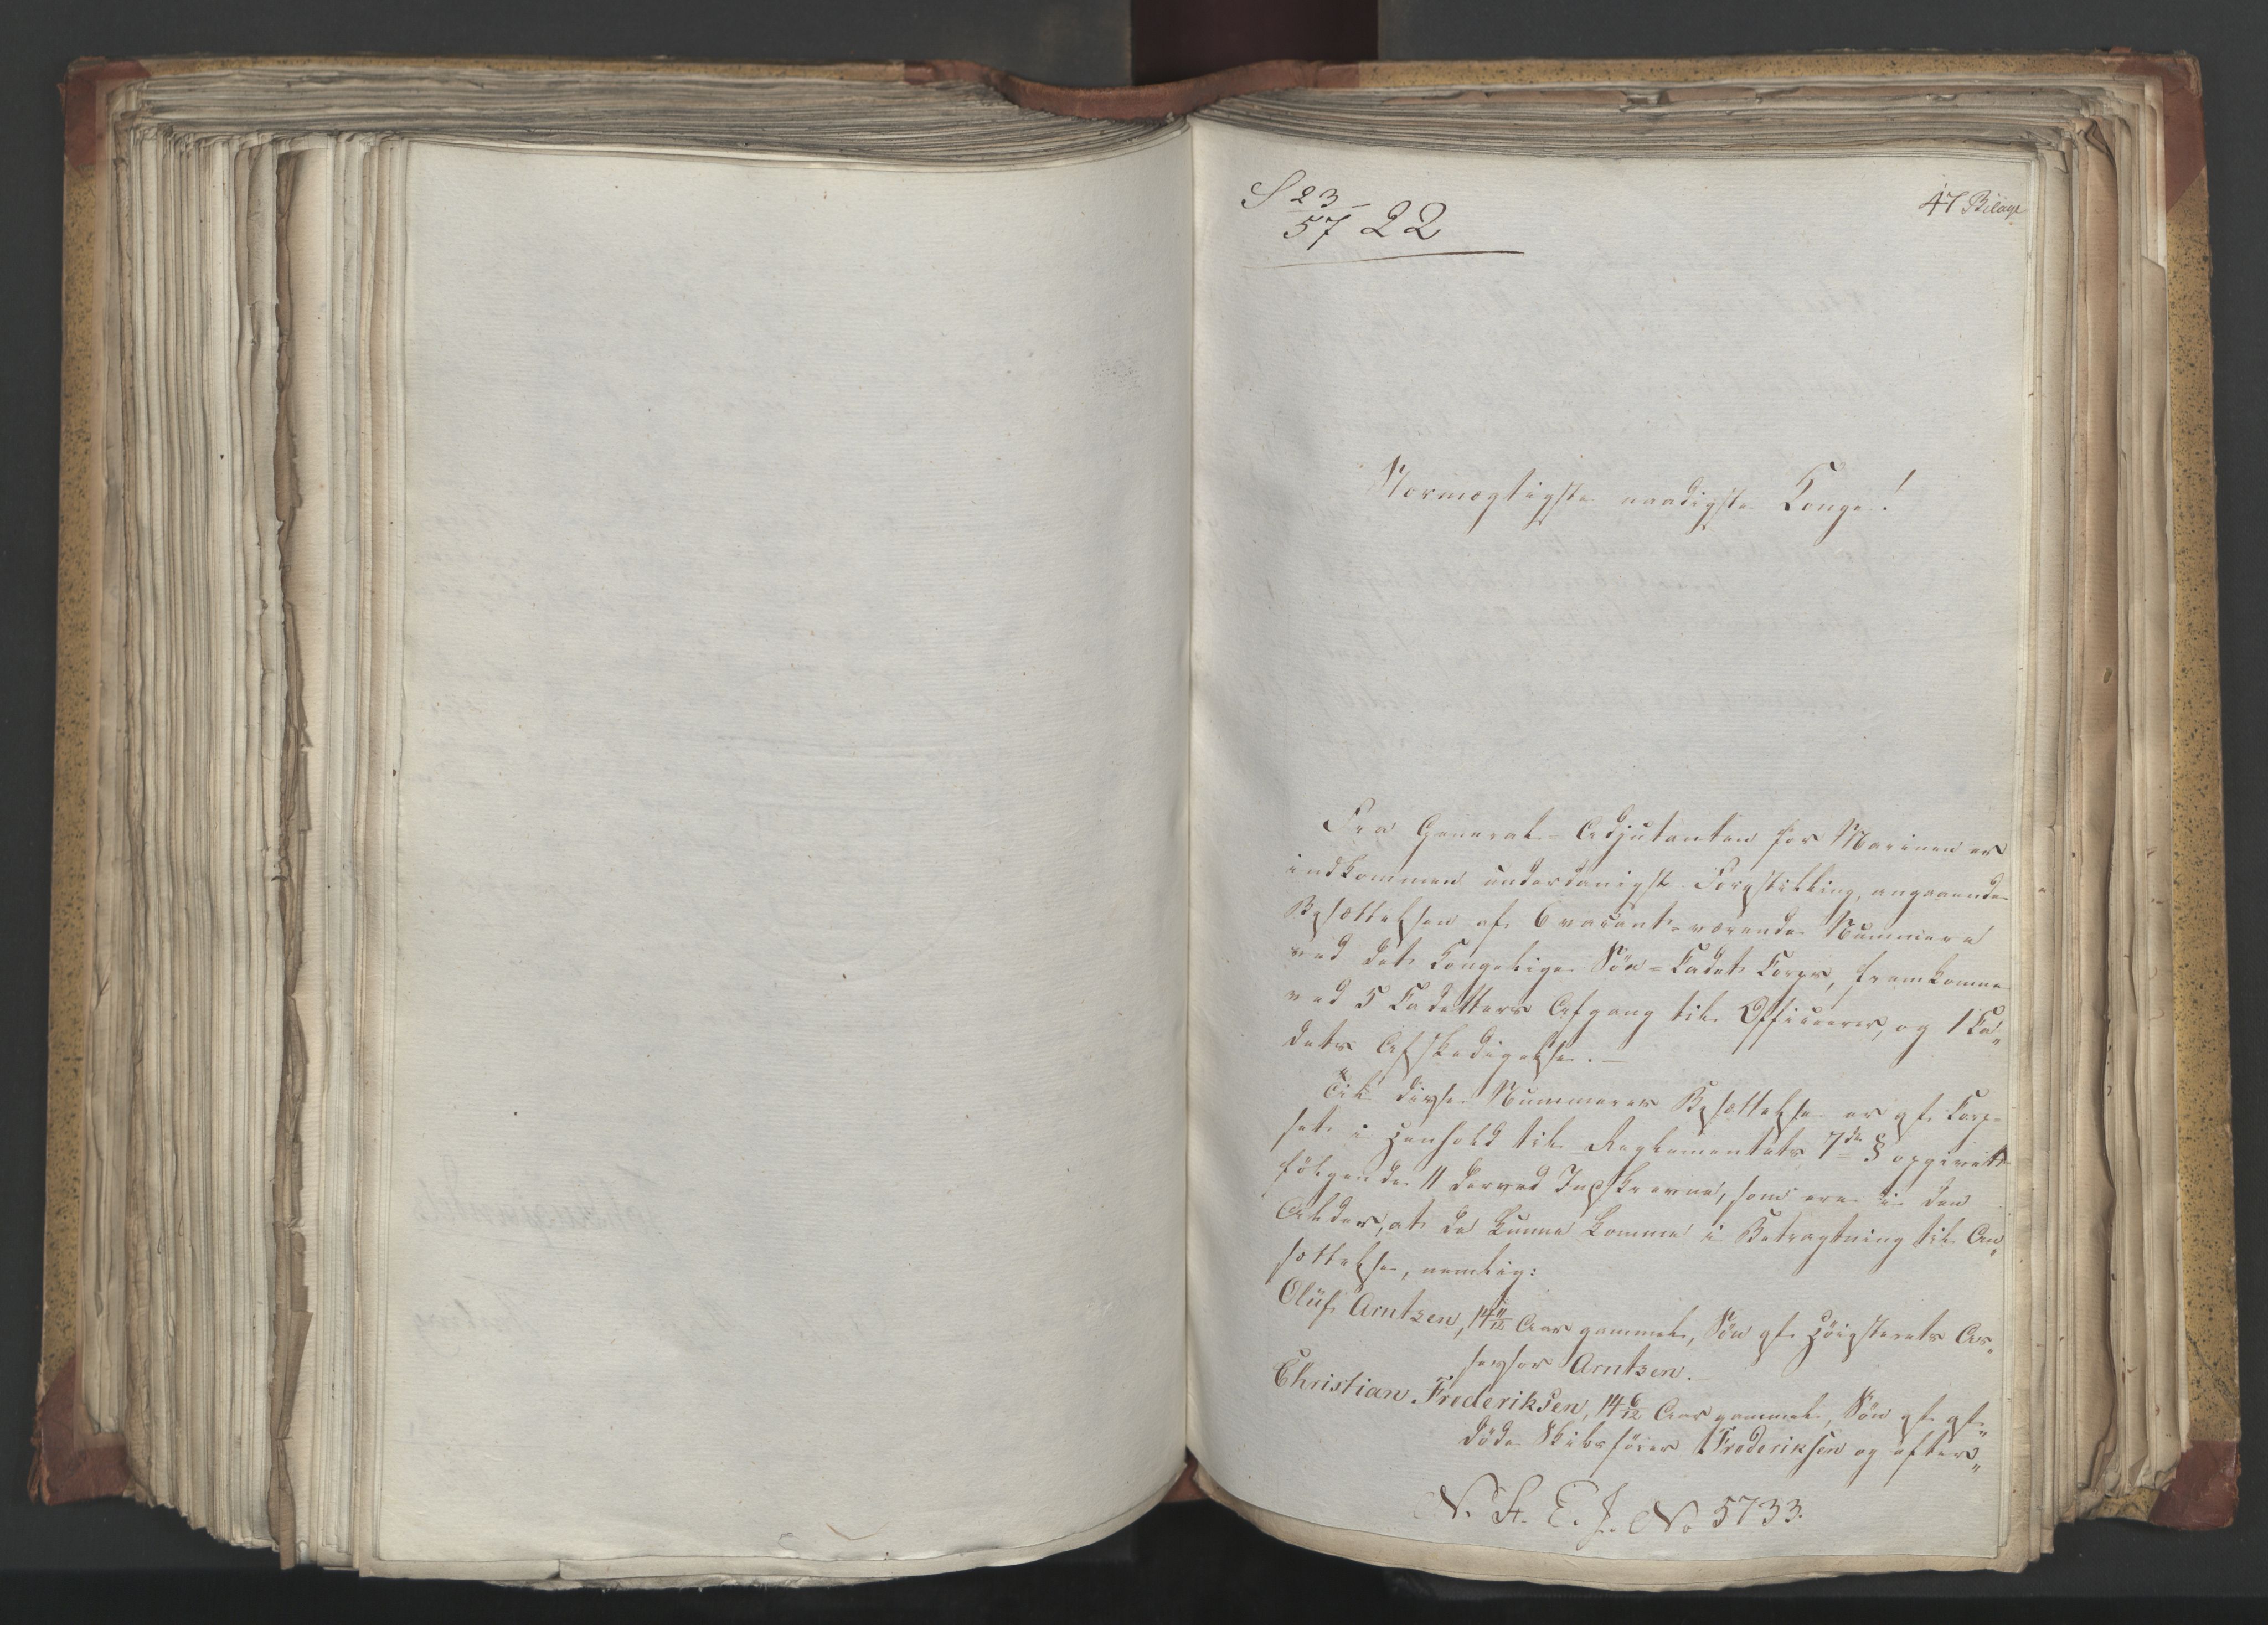 S 23-
57 22
47 Bilage
Stormægtigste naadigste Konge!
Fra General-Adjutanten for Marinen er
indkommen underdanigst Forestilling, angaaende
Besættelsen af 6 vacant-værende Nummere
ved det Kongelige Söe-Cadet Corps, fremkomne
ved 5 Cadetters Afgang til Officerer, og 1 Ca„
dets Afskedigelse. —
Til disse Nummeres Besættelse er af Corp-
set i Henhold til Reglementets 7de § opgivet
følgende 11 derved Indskrevne, som ere i den
Alder, at de kunne komme i Betragtning til An„
sættelse, nemlig:
Olüf Arntzen, 14 11/12 Aar gammel, Sön af Höiesterets As„
sessor Arntzen.
Christian Frederiksen, 14 6/12 Aar gammel, Sön af af„
döde Skibsfører Frederiksen og efter„
N. St. E. J. No 5733.